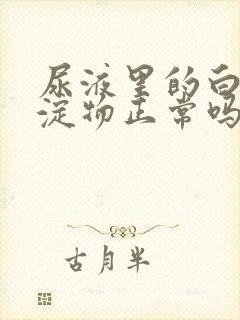 尿液里的白
淀物正常吗
古月半